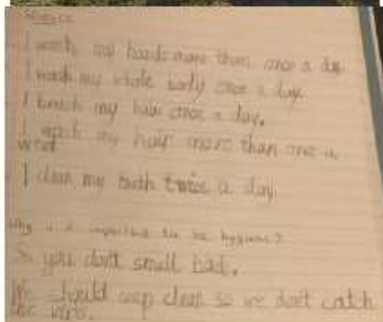 I wash my hands more than once a day
I wash my whole body once a day.
I brush my hair once a day.
I wash my hair more than once a
week
I clean my teeth twice a day
Why is it important to be hygienic?
So you don't smell bad.
We should keep clean so we don't catch
the